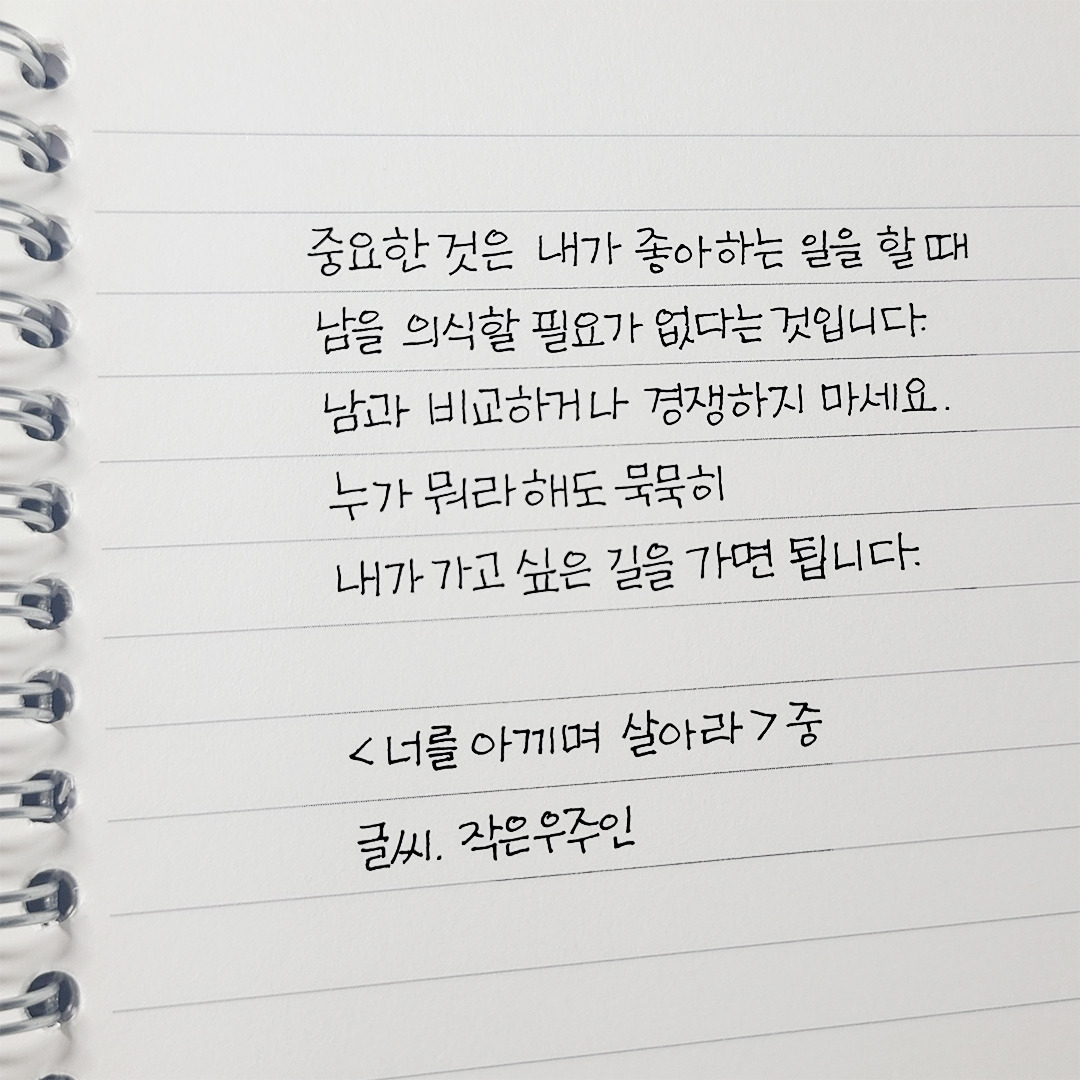 중요한 것은 내가 좋아하는 일을 할 때
남을 의식할 필요가 없다는 것입니다.
남과 비교하거나 경쟁하지 마세요.
누가 뭐라해도 묵묵히
내가 가고 싶은 길을 가면 됩니다.
<너를 아끼며 살아라> 중
글씨. 작은우주인